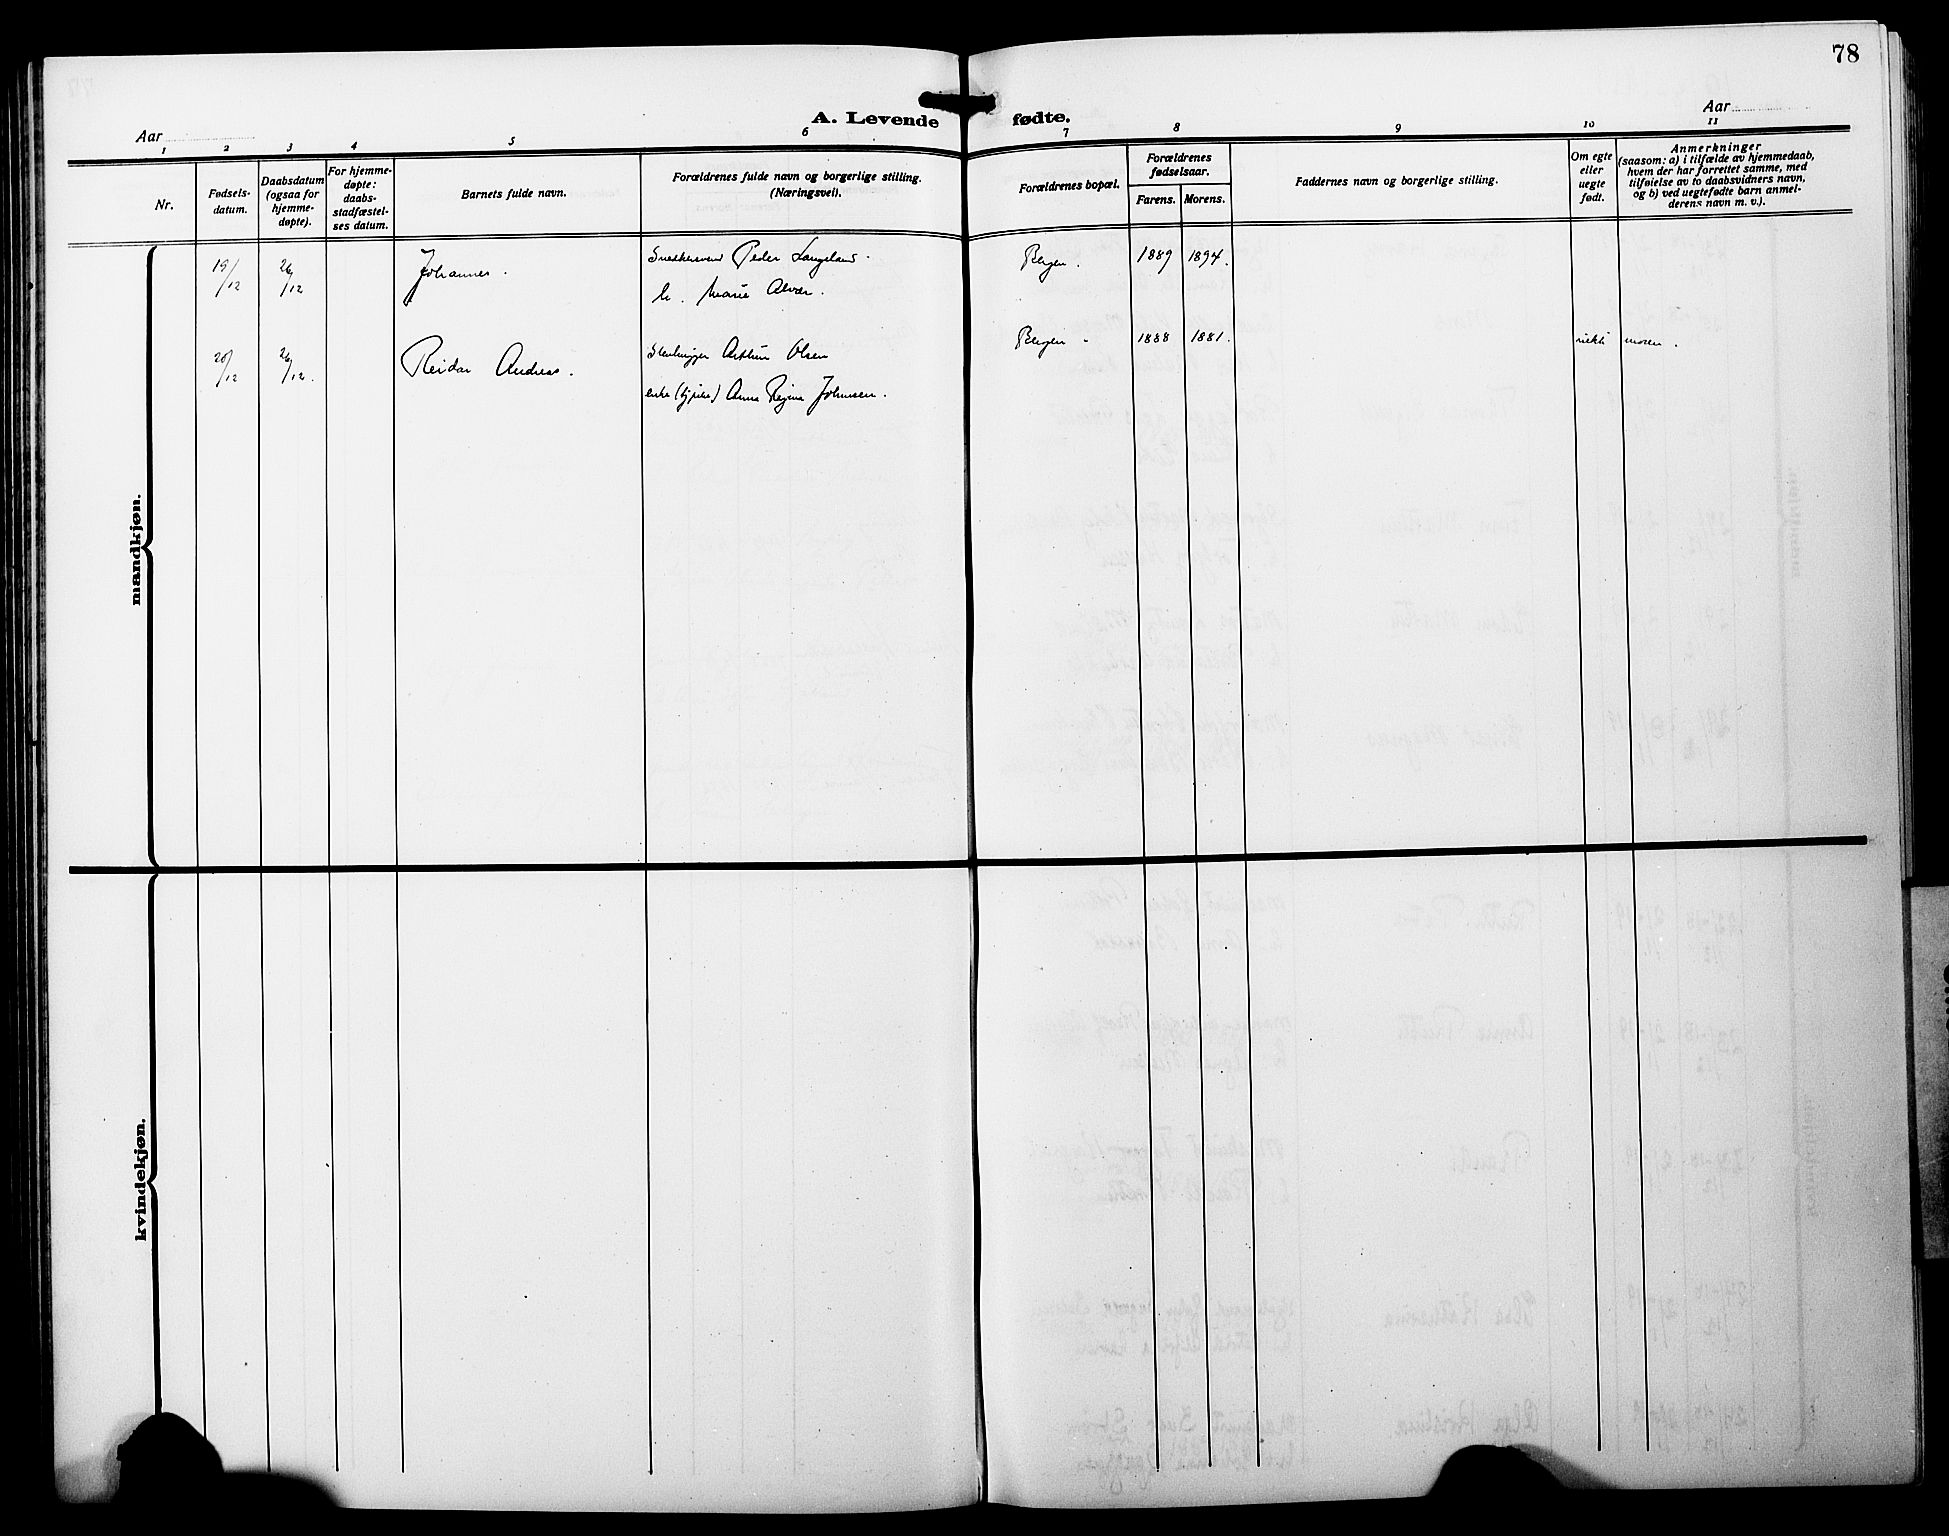 78
A. Levende fødte.
Aar
Aar
1 2 3 4 5 6 7 8 9 10 11
Nr.
Fødsels-
datum.
Daabsdatum
(ogsaa for
hjemme-
døpte).
For hjemme-
døpte:
daabs-
stadfæstel-
ses datum.
Barnets fulde navn.
Forældrenes fulde navn og borgerlige stilling.
(Næringsvei).
Forældrenes bopæl.
Forældrenes
fødselsaar.
Farens. Morens.
Faddernes navn og borgerlige stilling.
Om egte
eller
uegte
født.
Anmerkninger
(saasom: a) i tilfælde av hjemmedaab,
hvem der har forrettet samme, med
tilføielse av to daabsvidners navn,
og b) ved uegtefødte barn anmel-
derens navn m. v.).
mandkjøn.
19/12 26/12 Johannes. Snedkersvend Peder Langeland. Bergen. 1889 1894.
h. Marie Alver.
20/12 26/12. Reidar Andreas. Arthur Olsen Bergen 1888 1881. uekte moren.
enke Anna Regine Johnsen.
kvindekjøn.